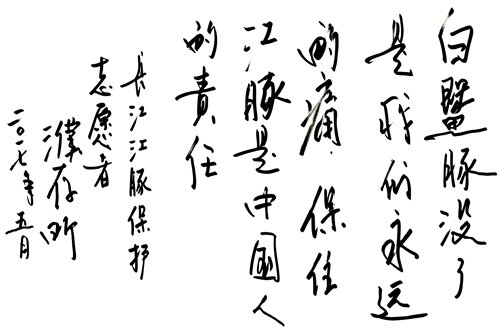 白鱀豚没了
是我们永远
的痛 保住
江豚是中国人
的责任
长江江豚保护
志愿者
濮存昕
二〇一七年五月